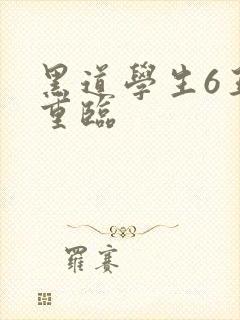 黑道學生6
重臨
羅賽